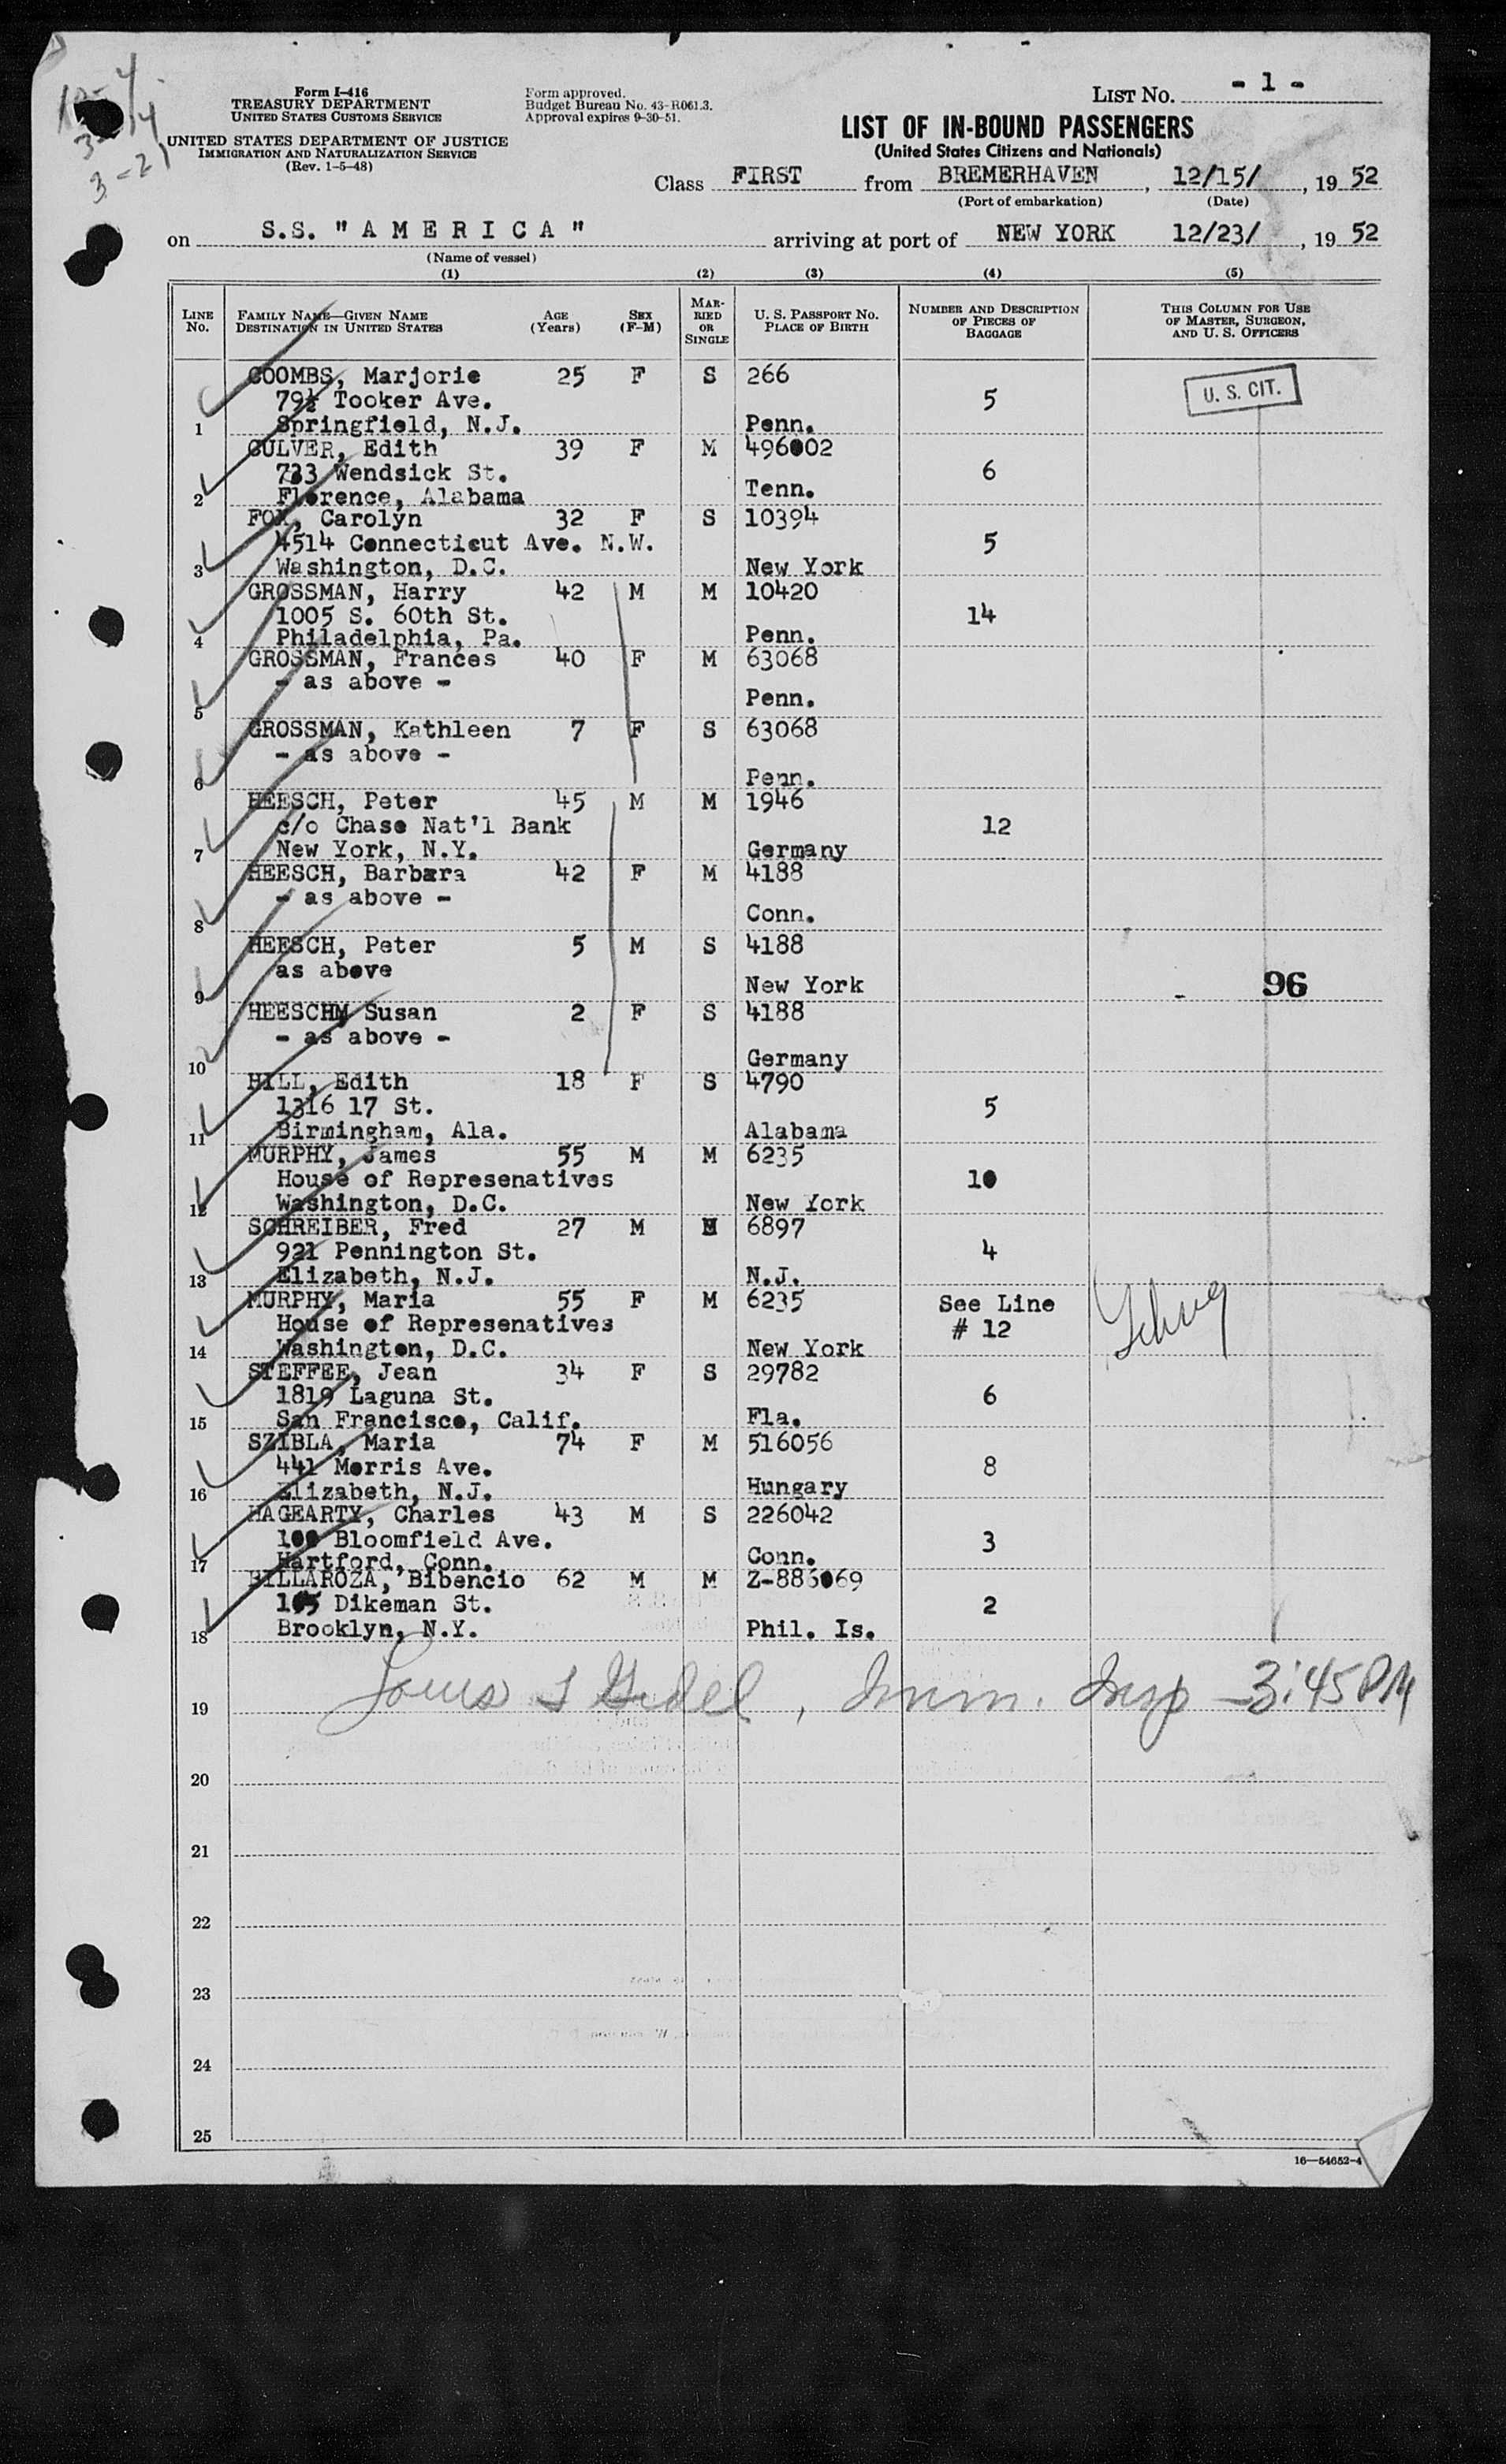 Form I-416
TREASURY DEPARTMENT
UNITED STATES CUSTOMS SERVICE
UNITED STATES DEPARTMENT OF JUSTICE
IMMIGRATION AND NATURALIZATION SERVICE
(Rev. 1-5-48)
Form approved.
Budget Bureau No. 43-R061.3.
Approval expires 9-30-51.
LIST NO. - 1 -
LIST OF IN-BOUND PASSENGERS
(United States Citizens and Nationals)
Class FIRST from BREMERHAVEN, 12/15/, 19 52
(Port of embarkation) (Date)
on S.S. "A M E R I C A" arriving at port of NEW YORK 12/23/, 19 52
(Name of vessel)
(1) (2) (3) (4) (5)
LINE No. FAMILY NAME—GIVEN NAME DESTINATION IN UNITED STATES AGE (Years) SEX (F-M) MARRIED OR SINGLE U. S. PASSPORT NO. PLACE OF BIRTH NUMBER AND DESCRIPTION OF PIECES OF BAGGAGE THIS COLUMN FOR USE OF MASTER, SURGEON, AND U. S. OFFICERS
COOMBS, Marjorie 25 F S 266
79½ Tooker Ave. 5 U. S. CIT.
1 Springfield, N.J. Penn.
CULVER, Edith 39 F M 496002
733 Wendsick St. 6
2 Florence, Alabama Tenn.
FOX, Carolyn 32 F S 10394
4514 Connecticut Ave. N.W. 5
3 Washington, D.C. New York
GROSSMAN, Harry 42 M M 10420
1005 S. 60th St. 14
4 Philadelphia, Pa. Penn.
GROSSMAN, Frances 40 F M 63068
- as above -
5 Penn.
GROSSMAN, Kathleen 7 F S 63068
- as above -
6 Penn.
HEESCH, Peter 45 M M 1946
c/o Chase Nat'l Bank 12
7 New York, N.Y. Germany
HEESCH, Barbara 42 F M 4188
- as above -
8 Conn.
HEESCH, Peter 5 M S 4188
as above
9 New York 96
HEESCHM Susan 2 F S 4188
- as above -
10 Germany
HILL, Edith 18 F S 4790
1316 17 St. 5
11 Birmingham, Ala. Alabama
MURPHY, James 55 M M 6235
House of Represenatives 10
12 Washington, D.C. New York
SCHREIBER, Fred 27 M M 6897
921 Pennington St. 4
13 Elizabeth, N.J. N.J.
MURPHY, Maria 55 F M 6235 See Line
House of Represenatives # 12
14 Washington, D.C. New York
STEFFEE, Jean 34 F S 29782
1819 Laguna St. 6
15 San Francisco, Calif. Fla.
SZIBLA, Maria 74 F M 516056
441 Morris Ave. 8
16 Elizabeth, N.J. Hungary
HAGEARTY, Charles 43 M S 226042
100 Bloomfield Ave. 3
17 Hartford, Conn. Conn.
BILLAROZA, Bibencio 62 M M Z-886069
Dikeman St. 2
18 Brooklyn, N.Y. Phil. Is.
19 Louis Imm. Insp - 3:45 PM
20
21
22
23
24
25
16—54652-4